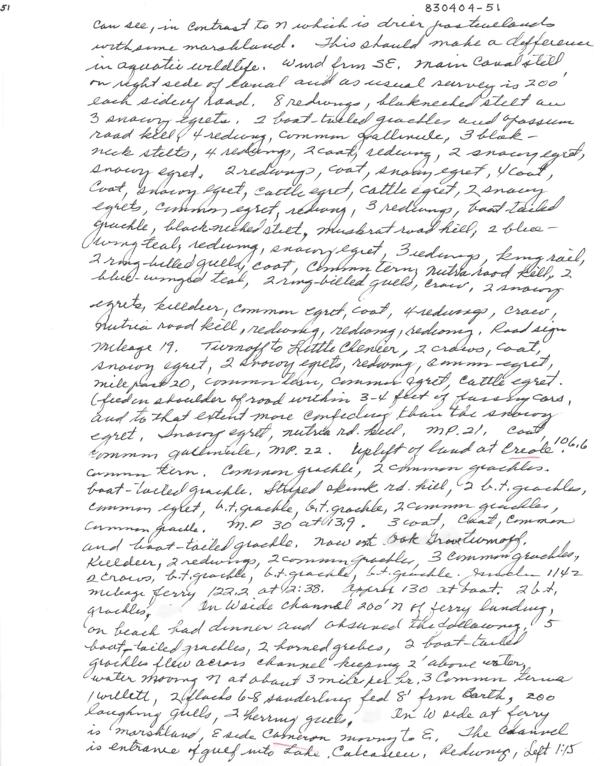 51
830404-51
can see, in contrast to N which is drier pasturelands
with some marshland. This should make a difference
in aquatic wildlife. Wind frm SE. Main Canal still
on right side of canal and as usual survey is 200'
each side of road. 8 redwings, blaknecked stilt
3 snowy egrets. 2 boat-tailed grackles and opossum
road kill, 4 redwing, common gallinule, 3 blak-
neck stilts, 4 redwings, 2 coot, redwing, 2 snowy egret,
snowy egret. 2 redwings, coot, snowy egret, 4 coot,
coot, snowy egret, cattle egret, cattle egret, 2 snowy
egrets, common egret, redwing, 3 redwings, boat tailed
grackle, black-necked stilt, muskrat road kill, 2 blue-
wing teal, redwing, snowy egret, 3 redwings, king rail,
2 ring-billed gulls, coot, common tern, nutria road kill, 2
blue-winged teal, 2 ring-billed gulls, crow, 2 snowy
egrets, killdeer, common egret, coot, 4 redwings, crow,
nutria road kill, redwing, redwing, redwing. Road sign
mileage 19. Turnoff to Little Chenier, 2 crows, coot,
snowy egret, 2 snowy egrets, redwing, common-egret,
mile post 20, common tern, common egret, cattle egret.
(feed in shoulder of road within 3-4 feet of passing cars,
and to that extent more confiding than the snowy
egret. Snowy egret, nutria rd. kill. MP. 21, coot
common gallinule, MP. 22. Uplift of land at Creole 106.6
common tern. Common grackle, 2 common grackles.
boat-tailed grackle. Striped skunk rd. kill, 2 b.t. grackles,
common egret, b.t. grackle, b.t. grackle, 2 common grackles,
common grackle. M.P 30 at 139. 3 coot, coot, common
and boat-tailed grackle. Now at Oak Grove turnoff.
Killdeer, 2 redwings, 2 common grackles, 3 common grackles,
2 crows, b.t. grackle, b.t. grackle, b.t. grackle. 1142
mileage ferry 122.2 at 2:38. Approx 130 at boat. 2 b.t.
grackles. On W side channel 200' N of ferry landing,
on beach had dinner and observed the following. 5
boat-tailed grackles, 2 horned grebes, 2 boat-tailed
grackles flew across channel keeping 2' above water,
water moving N at about 3 mile per hr. 3 Common terns
1 willett, 2 flocks 6-8 sanderling fed 8' frm Earth, 200
laughing gulls, 2 herring gulls. On W side at ferry
is marshland, E side Cameron moving to E. The Channel
is entrance of gulf into Lake Calcasieu, Redwing, Left 1:15